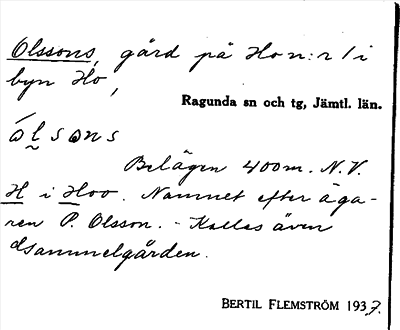 Olssons, gård på Ho n:r 1 i
byn Ho,
Ragunda sn och tg, Jämtl. län.
ólsons
Belägen 400m. N.V.
H i Hoo. Namnet efter äga-
ren P. Olsson. - Kallas även
Sammelgården.
BERTIL FLEMSTRÖM 1937.